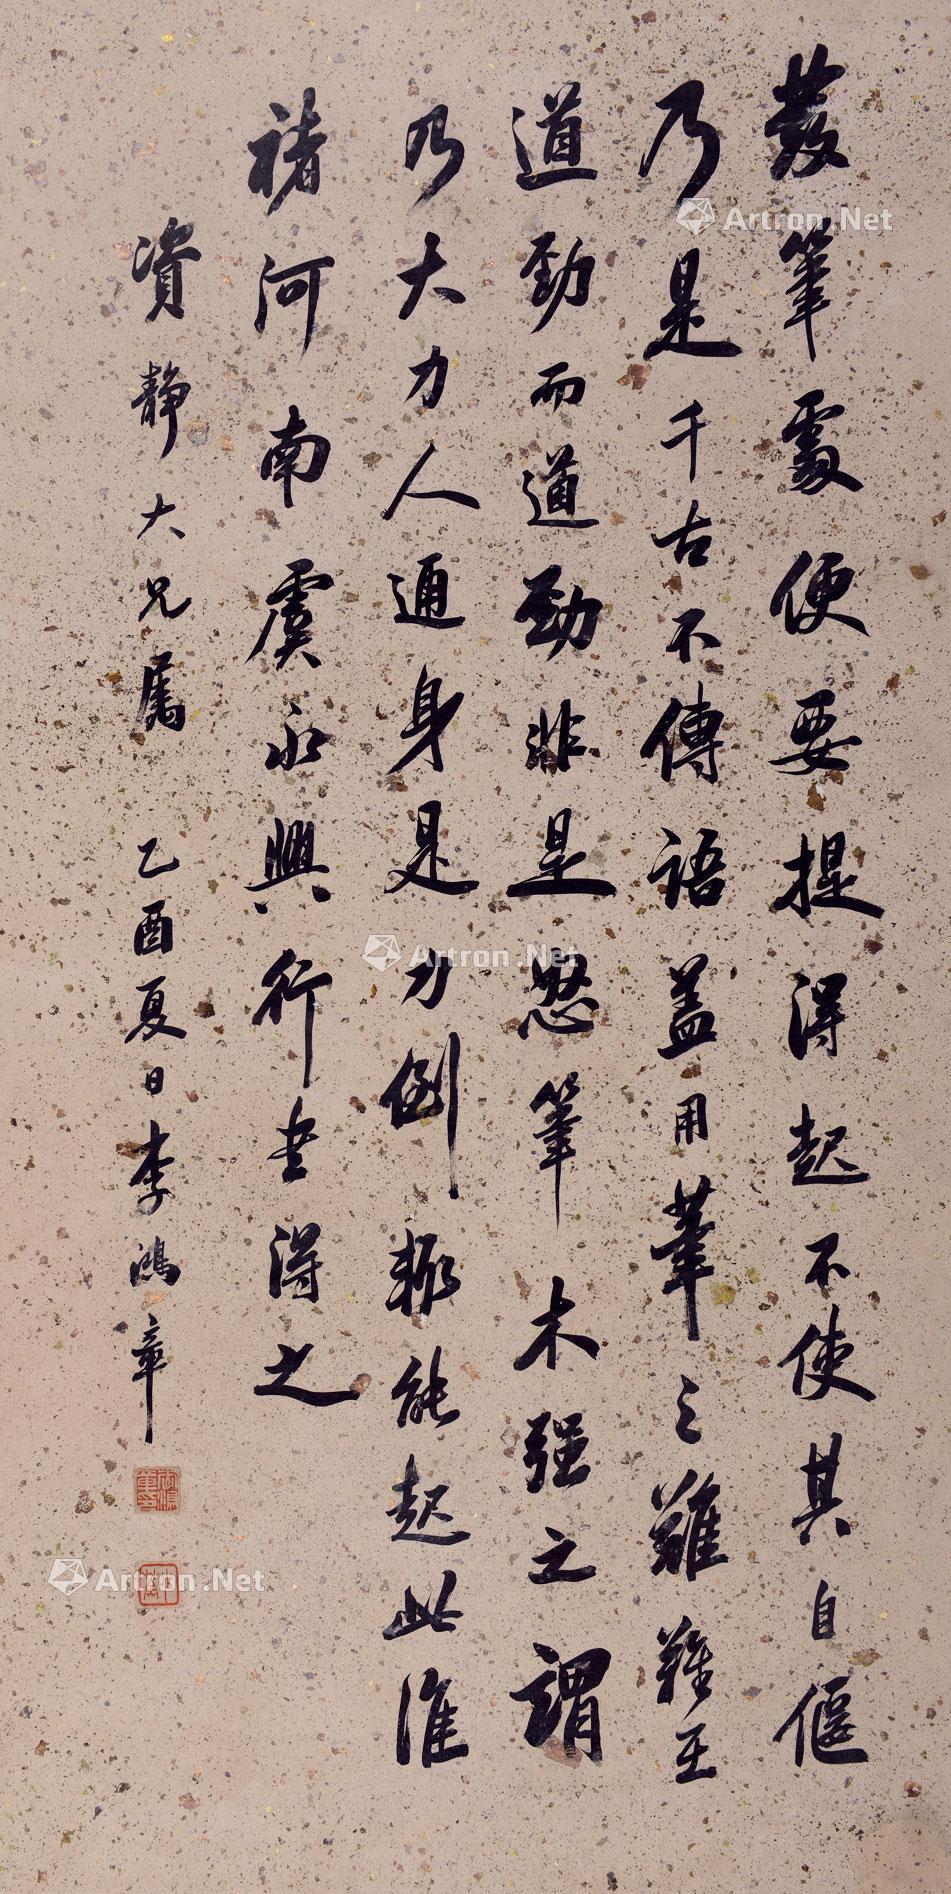 發筆處便要提得起不使其自偃
乃是千古不傳語蓋用筆之難難在
遒勁而遒勁非是怒筆木强之謂
乃大力人通身是力倒輒能起此惟
褚河南虞永興行書得之
資靜大兄屬 乙酉夏日李鴻章
Artron.Net
Artron.Net
Artron.Net